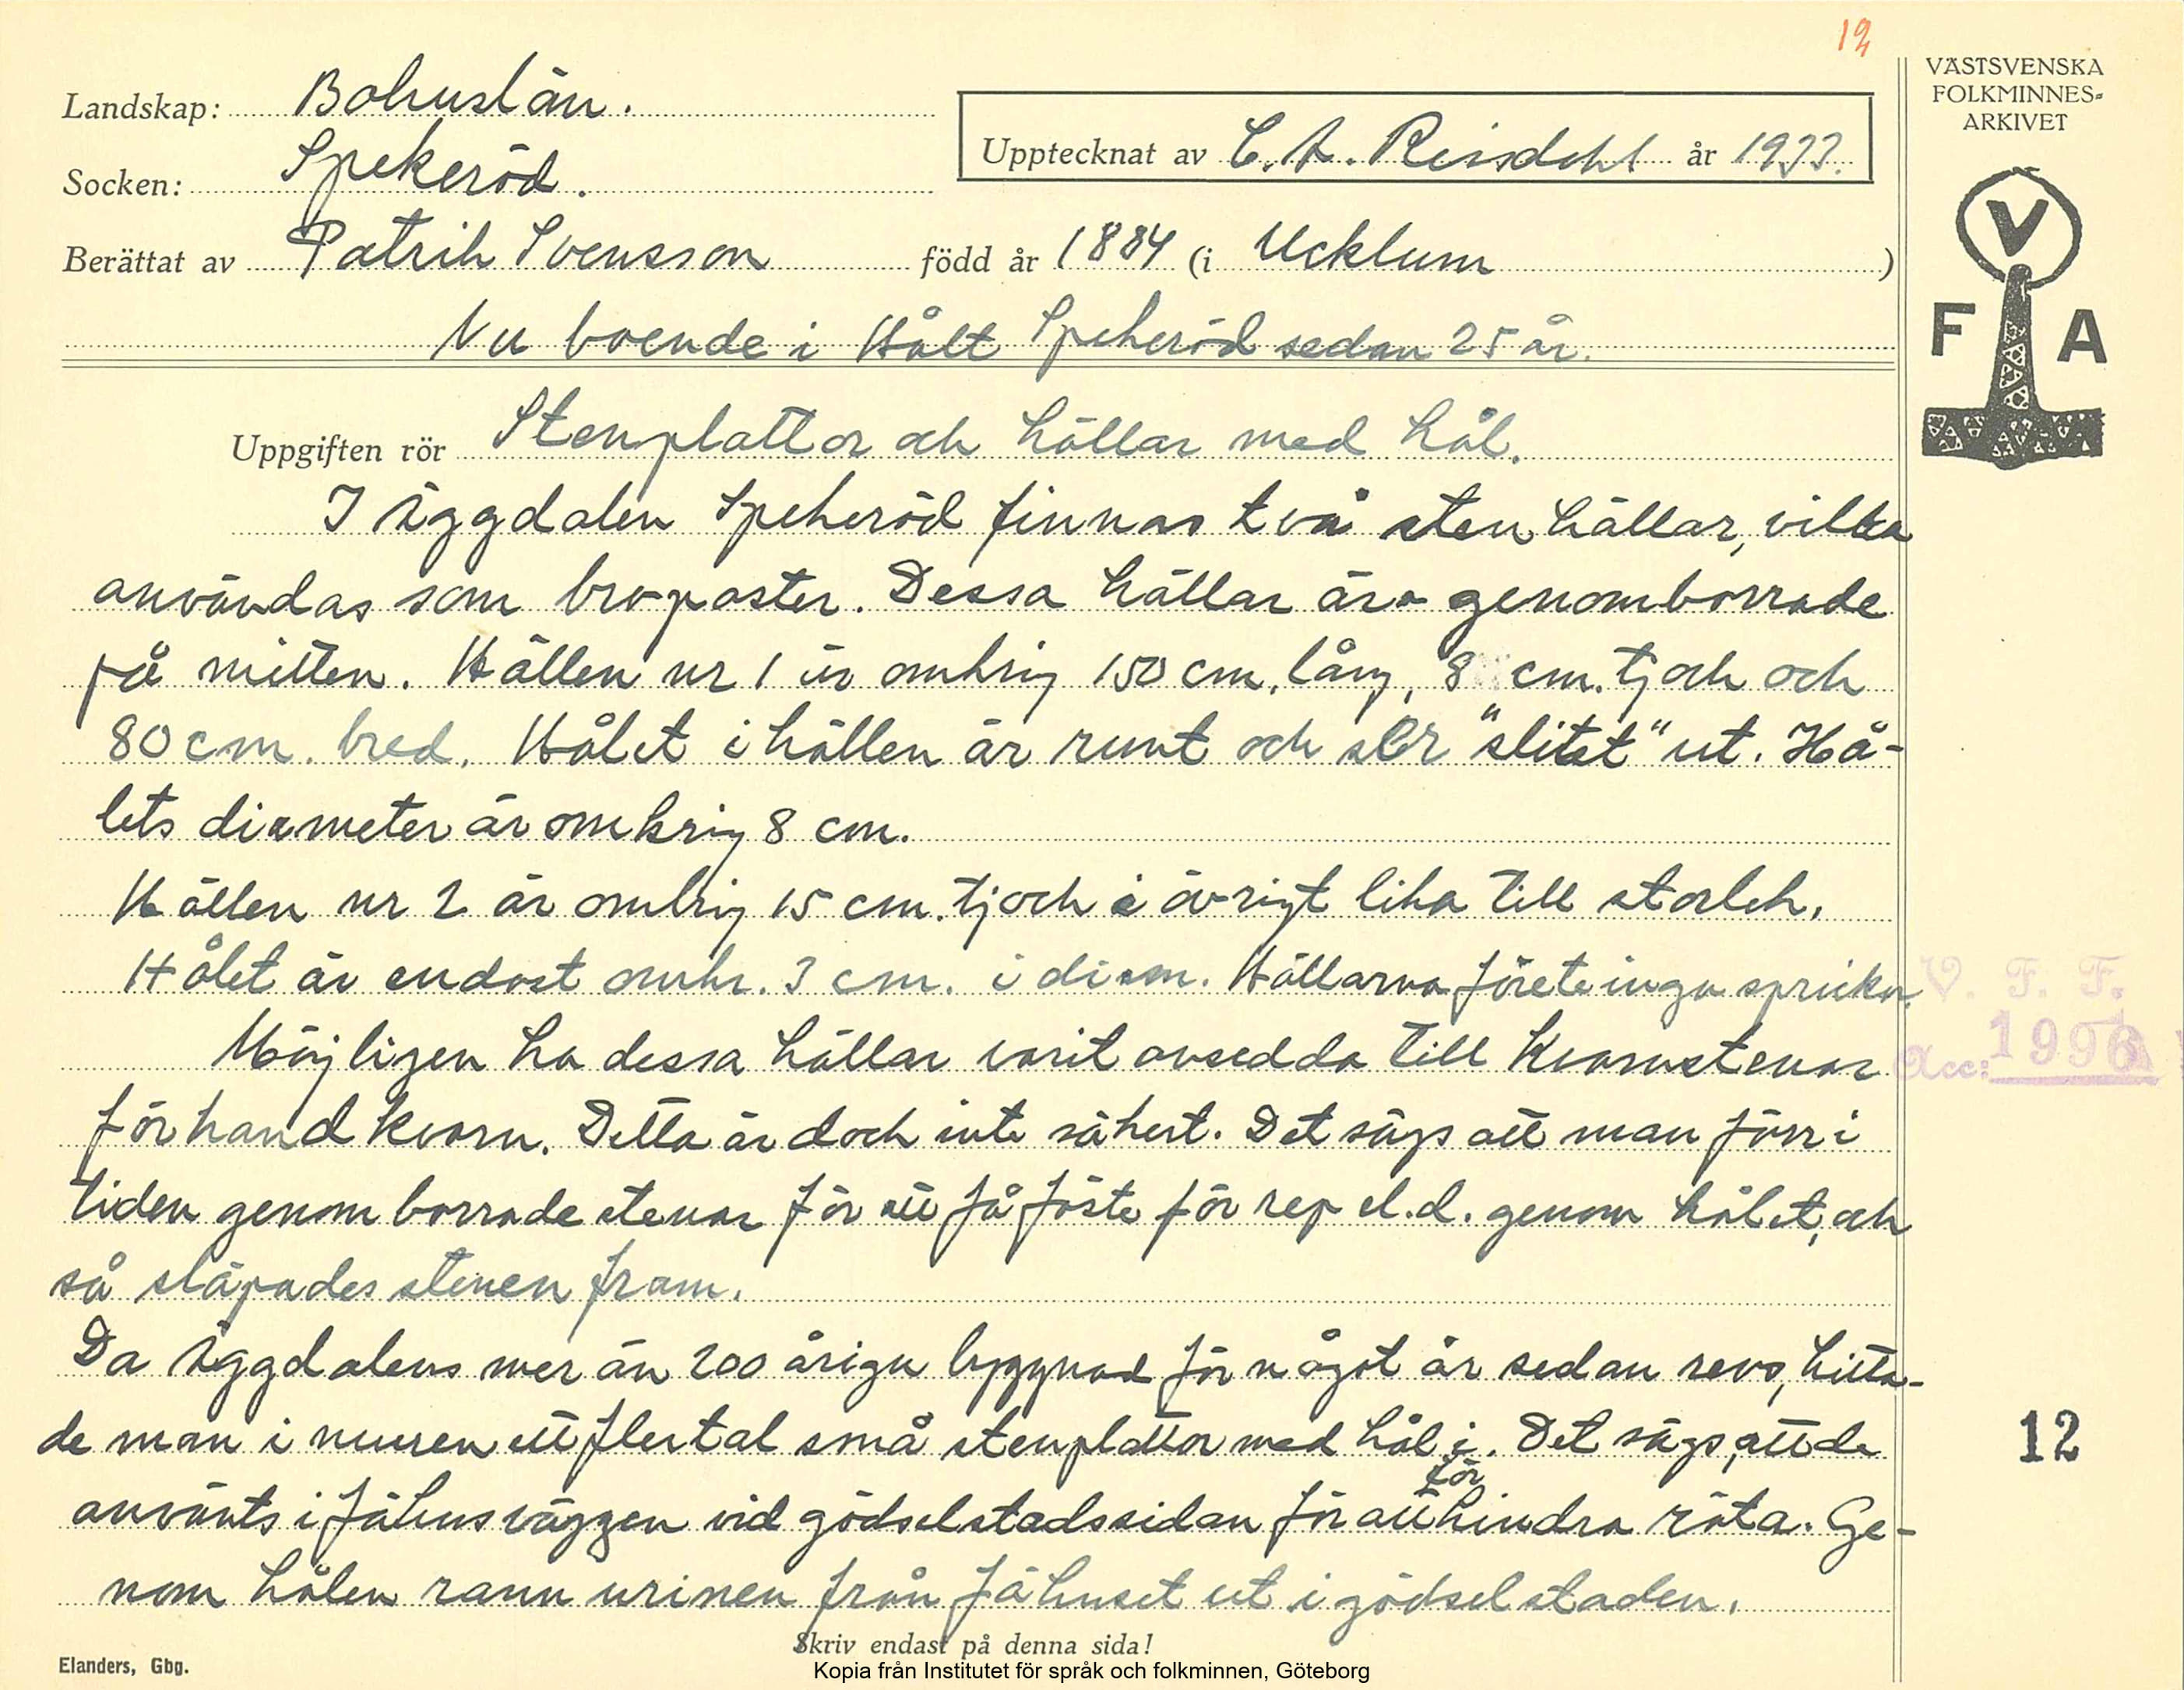 12
VÄSTSVENSKA
FOLKMINNES=
ARKIVET
Landskap: Bohuslän.
Socken: Spekeröd.
Upptecknat av C. A. Reisdahl år 1933.
Berättat av Patrik Svensson född år 1884 (i Ucklum )
Nu boende i Hålt Spekeröd sedan 25 år.
V
F A
Uppgiften rör Stenplattor och hällar med hål.
I Äggdalen Spekeröd finnas två sten hällar, vilka
användas som broposter. Dessa hällar äro genomborrade
på mitten. Hällen nr 1 är omkring 150 cm. lång, 8 cm. tjock och
80 cm. bred. Hålet i hällen är runt och ser "slitet" ut. Hå-
lets diameter är omkring 8 cm.
Hällen nr 2 är omkring 15 cm. tjock i övrigt lika till storlek.
Hålet är endast omkr. 3 cm. i diam. Hällarna förete inga sprickor.
Möjligen ha dessa hällar varit avsedda till kvarnstenar
för handkvarn. Detta är dock inte säkert. Det sägs att man förr i
tiden genomborrade stenar för att få fäste för rep el.d. genom hålet, och
så släpades stenen fram.
Da Äggdalens mer än 200 åriga byggnad för något år sedan revs, hitta-
de man i muren ett flertal små stenplattor med hål i. Det sägs, att de
använts i fähusväggen vid gödselstadssidan för att förhindra röta. Ge-
nom hålen rann urinen från fähuset ut i gödselstaden.
V. F. F.
Acc: 1996
12
Skriv endast på denna sida!
Elanders, Gbg.
Kopia från Institutet för språk och folkminnen, Göteborg